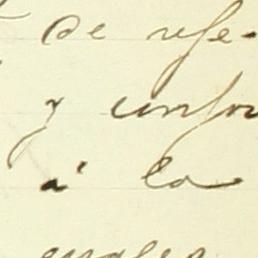 De refe-
y confor
á la